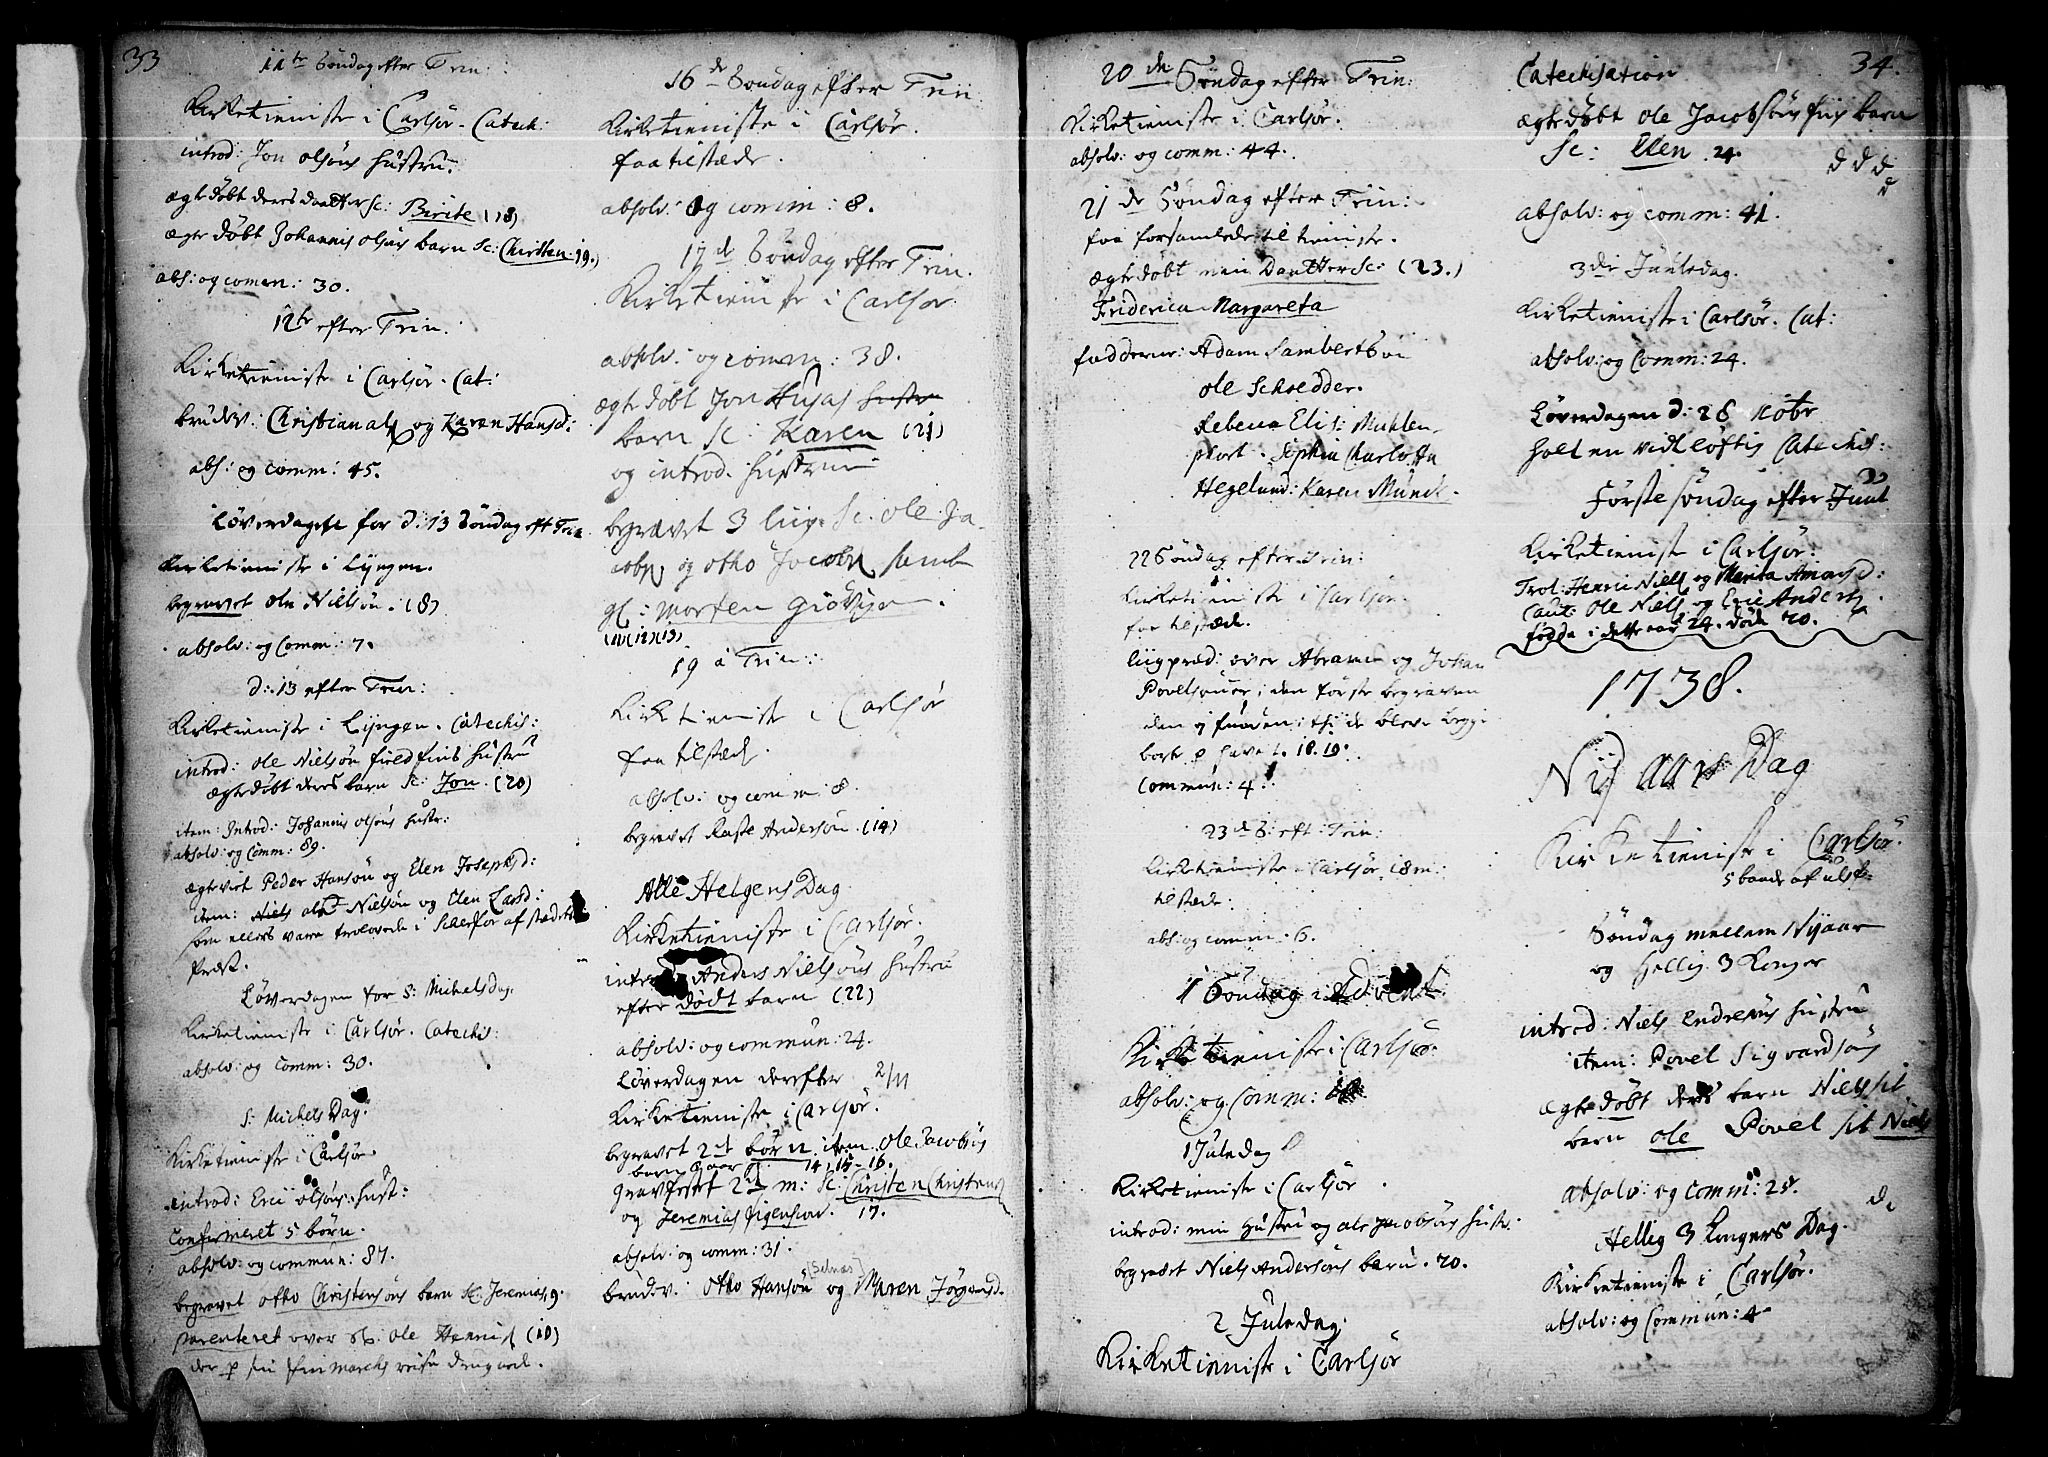 33
11te Söndag efter Trin:
Kirketieniste i Carlsör. Catech:
introd: Jon olsöns hustru.
ægte döbt deres daatter sc: Birite (18)
ægte döbt Johannis olsöns barn sc: Christen 19.)
abs: og comm: 30.
12te efter Trin:
Kirketieniste i Carlsör. Cat:
brudev: Christian als og Karen Hansd:
abs: og comm: 45.
Löverdagen for d: 13 Söndag eft Trin
Kirketieniste i Lyngen.
begravet ole Nielsön. (8)
absolv: og Comm: 7.
d: 13 efter Trin:
Kirketieniste i Lyngen. Catechis:
introd: ole Nielsön fieldfins hustru
ægte döbt deres barn sc: Jon. (20)
item: Introd: Johannis olsöns hustr:
absolv: og Comm: 89.
ægteviet Peder Hansön og Elen Josephsd:
item: Niels Nielsön og Elen Larsd:
som ellers vare trolovede i Schierför af
Præst.
Löverdagen for S: Michelsdag.
Kirketieniste i Carlsör. Catechis:
absolv: og Comm: 30.
S: Michels Dag.
Kirketieniste i Carlsör.
introd: Eric olsöns hust:
Confirmeret 5 börn.
absolv: og commun: 87.
begravet otto Christensöns barn sc: Jeremias, 9.
parenteret over ole (10)
16de Söndag efter Trin:
Kirketieniste i Carlsör.
faa tilstæde.
absolv: og comm: 8.
17de Söndag efter Trin.
Kirketieniste i Carlsör.
absolv: og comm: 38.
ægte döbt Jon Husas hustru
barn sc: Karen (21)
og introd. hustruen
begravet 3 liig. sc. ole Ja-
cobs og otho Jacobs samt
gl: Morten
(11)(12)(13)
19 à Trin:
Kirketieniste i Carlsör
faa tilstæde.
absolv: og comm: 8.
begravet Rasse Andersön. (14)
Alle Helgens Dag.
Kirketieniste i Carlsör.
introd: Anders Nielsöns hustru
efter dödt barn (22)
absolv: og commun: 24.
Löverdagen derefter 2/11
Kirketieniste i Carlsör.
begravet 2de börn. item. ole Jacobsöns
barn 14, 15-16.
gravfestet 2de m: sc: Christen Christens
og Jeremias 17.
absolv: og comm: 31.
brudev: otho Hansön og Maren Jörgensd.
20de Söndag efter Trin:
Kirketieniste i Carlsör.
absolv: og comm: 44.
21de Söndag efter Trin:
faa forsamlede til tieniste.
ægte döbt min Daatter sc: (23.)
Friderica Margareta
fadderne: Adam
ole Schredder.
Rebecca Elis: Muhlen-
phort. Sophia Charlotta
Hegelund: Karen Münck.
22 Söndag efter Trin:
Kirketieniste i Carlsör.
faa tilstæde.
liigpræd: over Abram og Johan
Povelsönner; den förste begraven
den ey funden: thi de bleve begge
bort p havet. 18. 19.
Commun: 4.
23de S: eft: Trin:
Kirketieniste i Carlsör. 18 m:
tilstæde.
abs: og comm: 6.
1 Söndag i Advent.
Kirketieniste i Carlsör.
absolv: og Comm:
1 Juledag
Kirketieniste i Carlsör
introd: min Hustru og ole Jacobsöns hustr.
begravet Niels Andersöns barn. 20.
2 Juledag.
Kirketieniste i Carlsör
34.
Catechisation
ægte döbt ole Jacobsöns fins barn
sc: Elen. 24.
absolv: og comm: 41.
3die Juuledag.
Kirketieniste i Carlsör. Cat:
absolv: og Comm: 24.
Löverdagen d: 28
holt en vidlöftig Catechis:
Förste söndag efter Juul
Kirketieniste i Carlsör:
Trol: Henric Niels og Merita Amonsd:
Caut: ole Niels og Eric Anders.
födde i dette aar 24. döde 20.
1738.
Nyt aars Dag
Kirketieniste i Carlsör.
Söndag mellem Nyaar
og hellig 3 Konger
introd: Niels Endresöns hustru
item: Povel Sigvardsöns
ægte döbt deres barn Niels sit
barn ole Povel sit Niels
absolv: og comm: 28.
Hellig 3 Kongers Dag.
Kirketieniste i Carlsör.
absolv: og Commun: 4